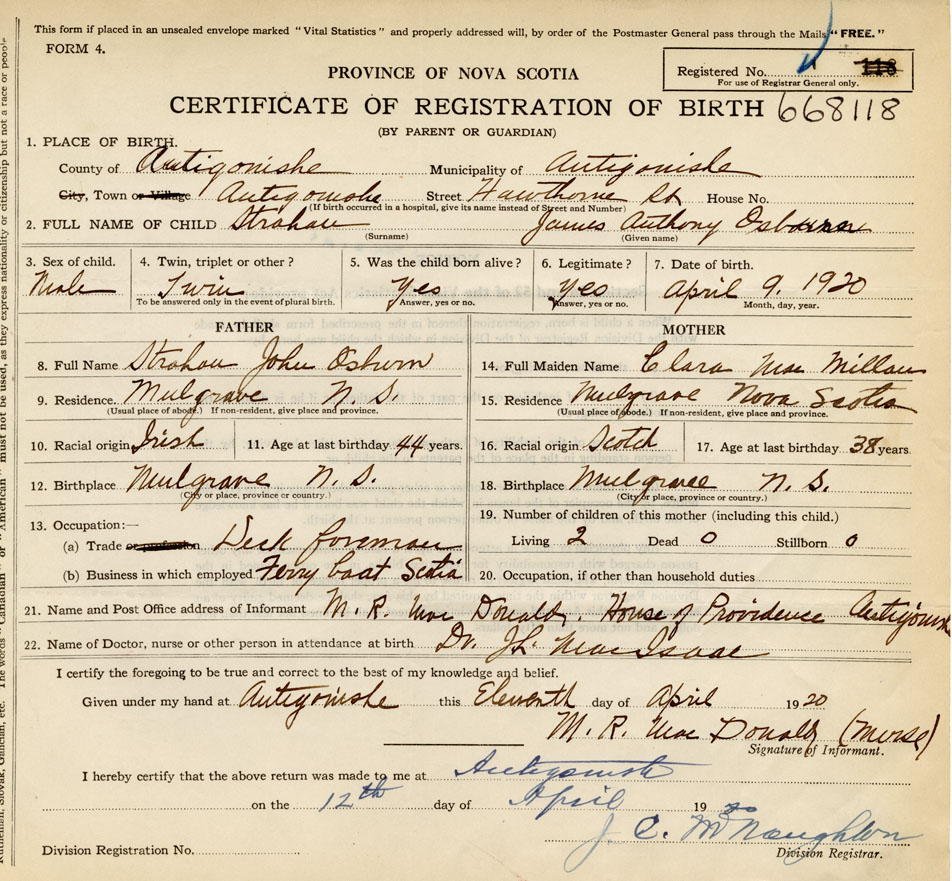 This form if placed in an unsealed envelope marked "Vital Statistics" and properly addressed will, by order of the Postmaster General pass through the Mails "FREE."
FORM 4.
Registered No. 118
For use of Registrar General only.
PROVINCE OF NOVA SCOTIA
CERTIFICATE OF REGISTRATION OF BIRTH 668118
(BY PARENT OR GUARDIAN)
1. PLACE OF BIRTH.
County of Antigonishe Municipality of Antigonishe
City, Town or Village Antigonishe Street Hawthorne St. House No.
(If birth occurred in a hospital, give its name instead of Street and Number)
2. FULL NAME OF CHILD Strahan James Anthony Osborne
(Surname) (Given name)
3. Sex of child. 4. Twin, triplet or other? 5. Was the child born alive? 6. Legitimate? 7. Date of birth.
Male Twin Yes Yes April 9. 1920
To be answered only in the event of plural birth. Answer, yes or no. Answer, yes or no. Month, day, year.
FATHER MOTHER
8. Full Name Strahan John Osburn 14. Full Maiden Name Clara Mac Millan
9. Residence. Mulgrave N. S. 15. Residence Mulgrave Nova Scotia
(Usual place of abode.) If non-resident, give place and province. (Usual place of abode.) If non-resident, give place and province.
10. Racial origin Irish 11. Age at last birthday 44 years. 16. Racial origin Scotch 17. Age at last birthday 38 years.
12. Birthplace Mulgrave N. S. 18. Birthplace Mulgrave N. S.
(City or place, province or country.) (City or place, province or country.)
13. Occupation:— 19. Number of children of this mother (including this child.)
(a) Trade or profession Deck foreman Living 2 Dead 0 Stillborn 0
(b) Business in which employed Ferry boat Scotia 20. Occupation, if other than household duties
21. Name and Post Office address of Informant M. R. Mac Donald. House of Providence Antigonish
22. Name of Doctor, nurse or other person in attendance at birth Dr. J. L. MacIsaac
I certify the foregoing to be true and correct to the best of my knowledge and belief.
Given under my hand at Antigonishe this Eleventh day of April 1920
M. R. Mac Donald (nurse)
Signature of Informant.
I hereby certify that the above return was made to me at Antigonish
on the 12th day of April 1920
J. C. McNaughton
Division Registration No. Division Registrar.
Ruthenian, Slovak, Galician, etc. The words "Canadian" or "American" must not be used, as they express nationality or citizenship but not a race or people.